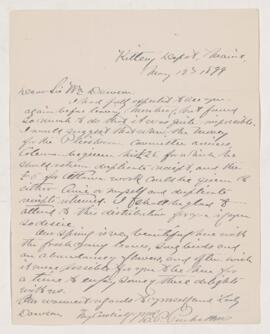 Kittery Depot, Maine,
May 12th 1899
Dear Sir Wm Dawson
I had full expected to see you
again before leaving Montreal, but found
so much to do that it was quite impossible.
I would suggest that when the money
for the committee arrives,
for which he
should return duplicate receipt, and the
for Ottawa work could be given to
either Amie or myself and duplicate
receipts returned. I shall be glad to
attend to the distribution for you if you
so desire.
Our spring is very beautiful here with
the fresh young leaves, song birds and
an abundance of flowers, and I often wish
it were possible for you to be here for
a time to enjoy some of these delights
with us.
Our warmest regards to yourself and Lady
Dawson